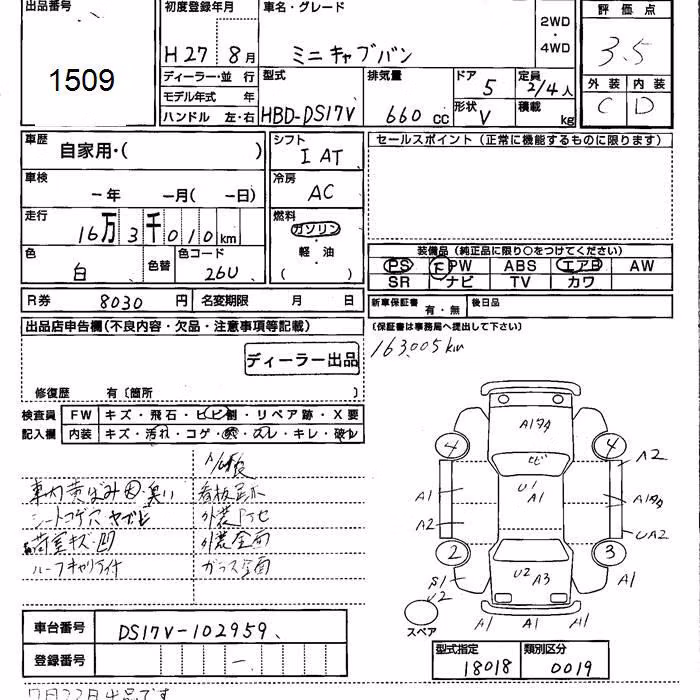 出品番号 初度登録年月 車名・グレード 2WD・4WD 評価点
1509 H27 8月 ミニキャブバン 3.5
ディーラー・並 行 型式 排気量 ドア 5 定員 2/4人 外装 内装
モデル年式 年 C D
ハンドル 左・右 HBD-DS17V 660cc 形状 V 積載 kg
車歴 自家用・( ) シフト IAT セールスポイント(正常に機能するものに限ります)
車検 -年 -月(-日) 冷房 AC
走行 16万3千010km 燃料 ガソリン・軽油 ( )
色 白 色替 色コード 26U
装備品(純正品に限り○をつけてください)
PS F PW ABS エアB AW
SR ナビ TV カワ
R券 8030円 名変期限 月 日 新車保証書 有・無 後日品
(保証書は事務局へ提出して下さい)
出品店申告欄(不良内容・欠品・注意事項等記載) 163,005km
ディーラー出品
修復歴 有〔箇所 〕
検査員 FW キズ・飛石・ヒビ割・リペア跡・X要
記入欄 内装 キズ・汚れ・コゲ・穴・スレ・キレ・破レ
車内黄ばみ 臭い 看板跡
シートコゲ穴 ヤブレ 外装
荷室キズ・凹 外装全面
ルーフキャリア付 ガラス全面
A1タタ
4 4
ヒビ A2
U1
A1 A1 A1タタ
A2 UA2
2 3
S1 U2 A3 A1
U2
スペア A1 A1
車台番号 DS17V-102959
登録番号 -
型式指定 類別区分
18018 0019
7月22日出品です